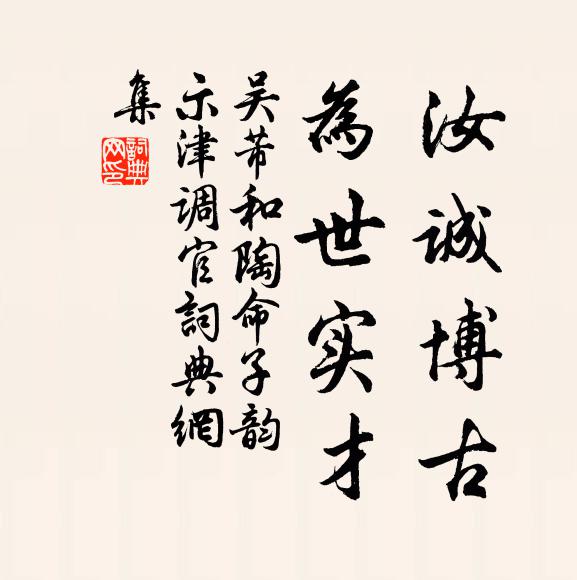 汝诚博古
為世实才
吴芾和陶命子韵
示津调官詞典網
集
詞典网印